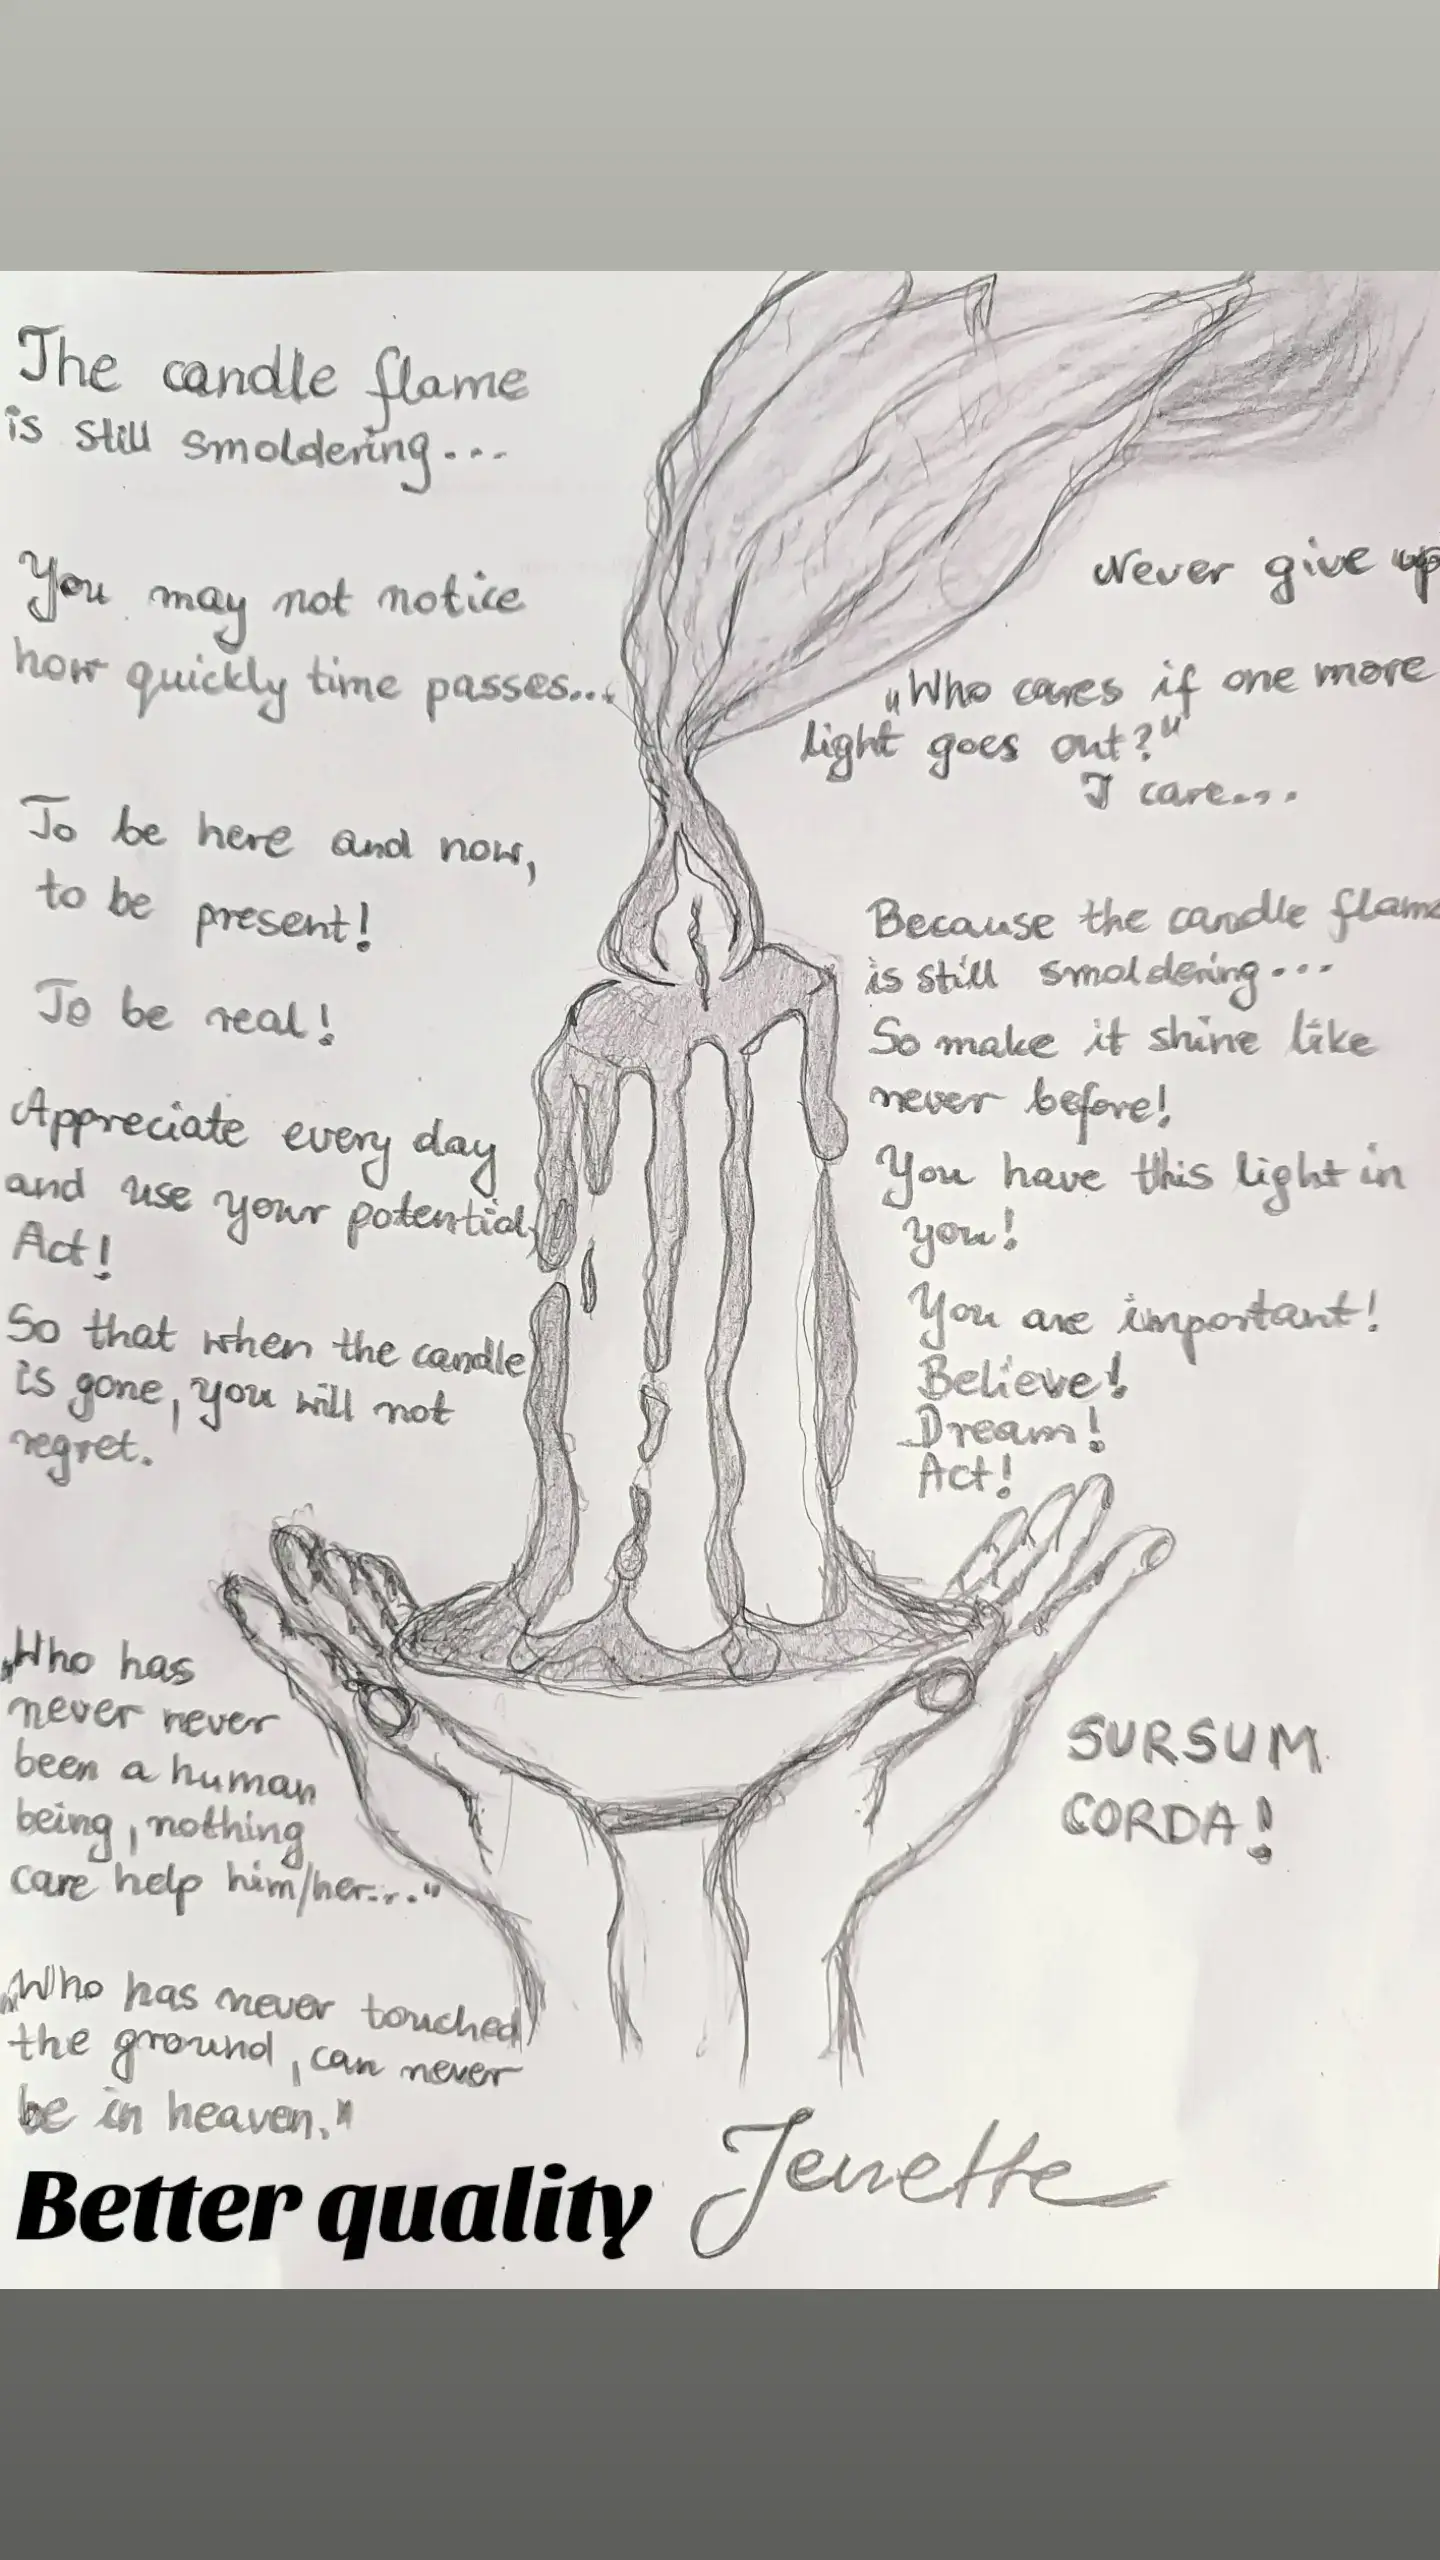 The candle flame
is still smoldering...
You may not notice
how quickly time passes...
To be here and now,
to be present!
To be real!
Appreciate every day
and use your potential,
Act!
So that when the candle
is gone, you will not
regret.
„Who has
never never
been a human
being, nothing
care help him/her...."
„Who has never touched
the ground, can never
be in heaven."
Never give up
„Who cares if one more
light goes out?"
I care....
Because the candle flame
is still smoldering...
So make it shine like
never before!
You have this light in
you!
You are important!
Believe!
Dream!
Act!
SURSUM
CORDA!
Jenette
Better quality